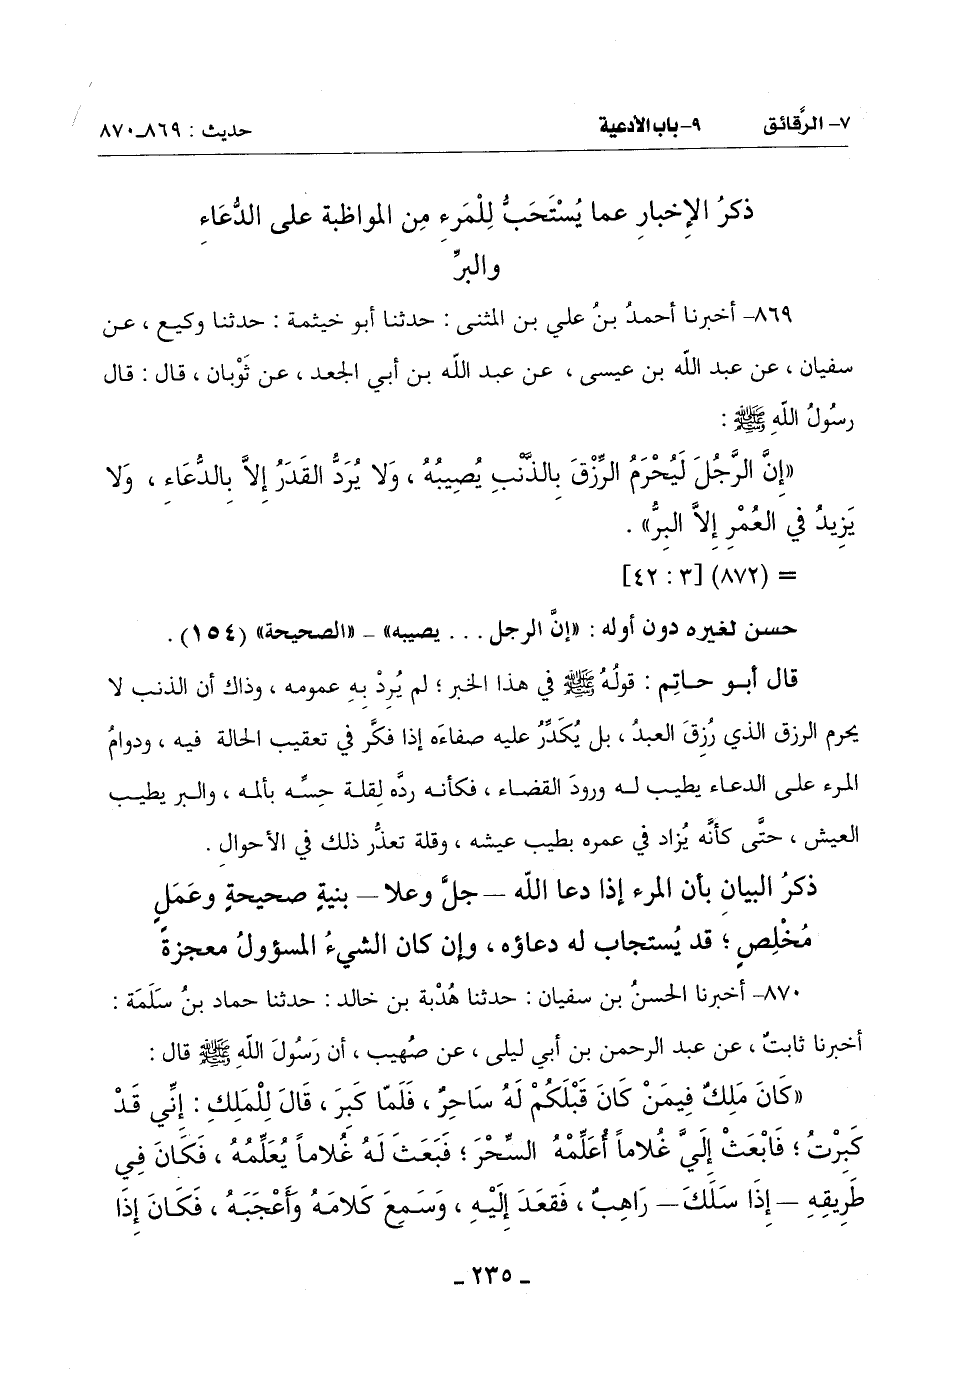 ٧- الرَّقائق ٩- باب الأدعية حديث : ٨٦٩ـ٨٧٠
ذكرُ الإخبارِ عما يُسْتَحَبُّ لِلْمَرءِ مِن المواظبة على الدُّعَاءِ
والبرِّ
٨٦٩- أخبرنا أحمدُ بنُ علي بن المثنى : حدثنا أبو خيثمة : حدثنا وكيع ، عن
سفيان ، عن عبد اللّه بن عيسى ، عن عبد اللّه بن أبي الجعد ، عن ثَوْبان ، قال : قال
رسُولُ اللّهِ ﷺ :
«إِنَّ الرَّجُلَ لَيُحْرَمُ الرِّزْقَ بِالذَّنْبِ يُصِيبُهُ ، وَلا يُرَدُّ القَدَرُ إِلاَّ بِالدُّعَاءِ ، وَلا
يَزِيدُ في العُمْرِ إِلاَّ البِرُّ» .
= (٨٧٢) [٣ : ٤٢]
حسن لغيره دون أوله : «إنَّ الرجل . . . يصيبه» ـ «الصحيحة» (١٥٤) .
قال أبو حاتِم : قولُهُ ﷺ في هذا الخبر ؛ لم يُرِدْ بِهِ عمومه ، وذاك أن الذنب لا
يحرم الرزق الذي رُزِقَ العبدُ ، بل يُكَدِّرُ عليه صفاءَه إذا فكَّر في تعقيب الحالة فيه ، ودوامُ
المرء على الدعاء يطيب له ورودَ القضاء ، فكأنه ردَّه لِقلة حِسِّه بألمه ، والبر يطيب
العيش ، حتَّى كأنَّه يُزاد في عمره بطيب عيشه ، وقلة تعذُّر ذلك في الأحوالِ .
ذكرُ البيان بأن المرء إذا دعا اللّه – جلَّ وعلا – بنيةٍ صحيحةٍ وعَمَلٍ
مُخْلِصٍ ؛ قد يُستجاب له دعاؤه ، وإن كان الشيءُ المسؤولُ معجزةً
٨٧٠- أخبرنا الحسنُ بن سفيان : حدثنا هُدْبة بن خالد : حدثنا حماد بنُ سَلَمَة :
أخبرنا ثابتٌ ، عن عبد الرحمن بن أبي ليلى ، عن صُهيب ، أن رَسُولَ اللّهِ ﷺ قال :
«كَانَ مَلِكٌ فِيمَنْ كَانَ قَبْلَكُمْ لَهُ سَاحِرٌ ، فَلَمَّا كَبِرَ ، قَالَ لِلْمَلِكِ : إِنِّي قَدْ
كَبِرْتُ ؛ فَابْعَثْ إِلَيَّ غُلاماً أُعَلِّمْهُ السِّحْرَ ؛ فَبَعَثَ لَهُ غُلاماً يُعَلِّمُهُ ، فَكَانَ فِي
طَرِيقِهِ – إِذَا سَلَكَ – رَاهِبٌ ، فَقَعَدَ إِلَيْهِ ، وَسَمِعَ كَلامَهُ وَأَعْجَبَهُ ، فَكَانَ إِذَا
ـ ٢٣٥ ـ